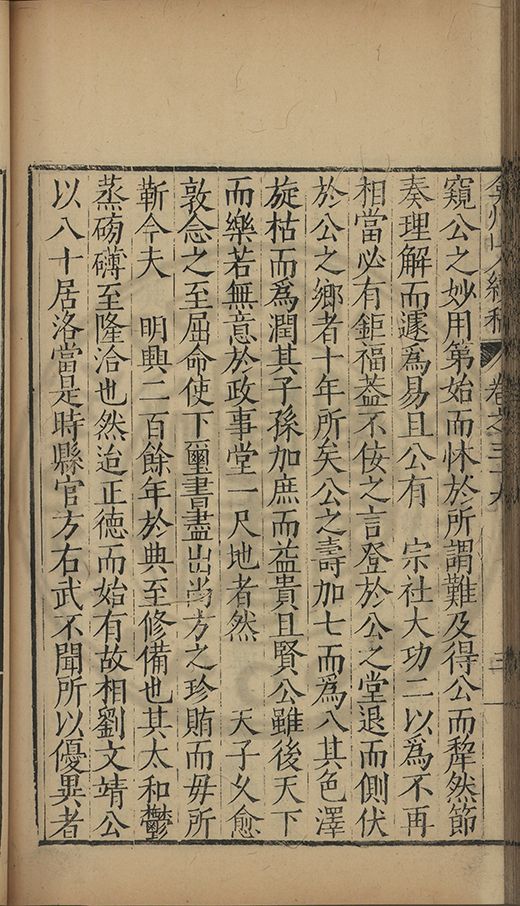 弇州山人續稿 卷之三十九 三
窺公之妙用第始而怵於所謂難及得公而犂然節
奏理解而遽爲易且公有 宗社大功二以爲不再
相當必有鉅福葢不佞之言登於公之堂退而側伏
於公之鄉者十年所矣公之壽加七而爲八其色澤
旋枯而爲潤其子孫加庶而益貴且賢公雖後天下
而樂若無意於政事堂一尺地者然 天子久愈
敦念之至屈命使下璽書盡出尚方之珍賄而毋所
靳今夫 明興二百餘年於典至修備也其太和鬱
蒸磅礴至隆洽也然迨正德而始有故相劉文靖公
以八十居洛當是時縣官方右武不聞所以優異者